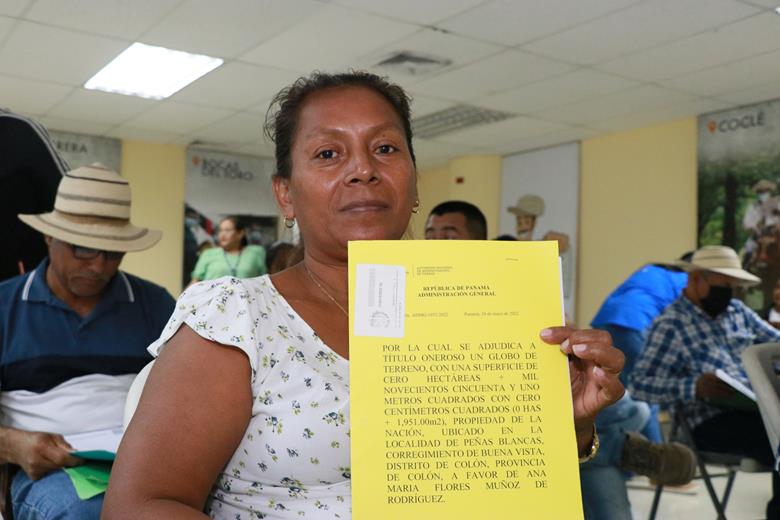 RRERA
BOCAS
DEL TORO
COCLÉ
AUTORIDAD NACIONAL
DE ADMINISTRACIÓN
DE TIERRAS
REPÚBLICA DE PANAMÁ
ADMINISTRACIÓN GENERAL
Panamá, 24 de mayo de 2022
POR LA CUAL SE ADJUDICA A
TÍTULO ONEROSO UN GLOBO DE
TERRENO, CON UNA SUPERFICIE DE
CERO HECTÁREAS + MIL
NOVECIENTOS CINCUENTA Y UNO
METROS CUADRADOS CON CERO
CENTÍMETROS CUADRADOS (0 HAS
+ 1,951.00m2), PROPIEDAD DE LA
NACIÓN, UBICADO EN LA
LOCALIDAD DE PEÑAS BLANCAS,
CORREGIMIENTO DE BUENA VISTA,
DISTRITO DE COLÓN, PROVINCIA
DE COLÓN, A FAVOR DE ANA
MARIA FLORES MUÑOZ DE
RODRÍGUEZ.